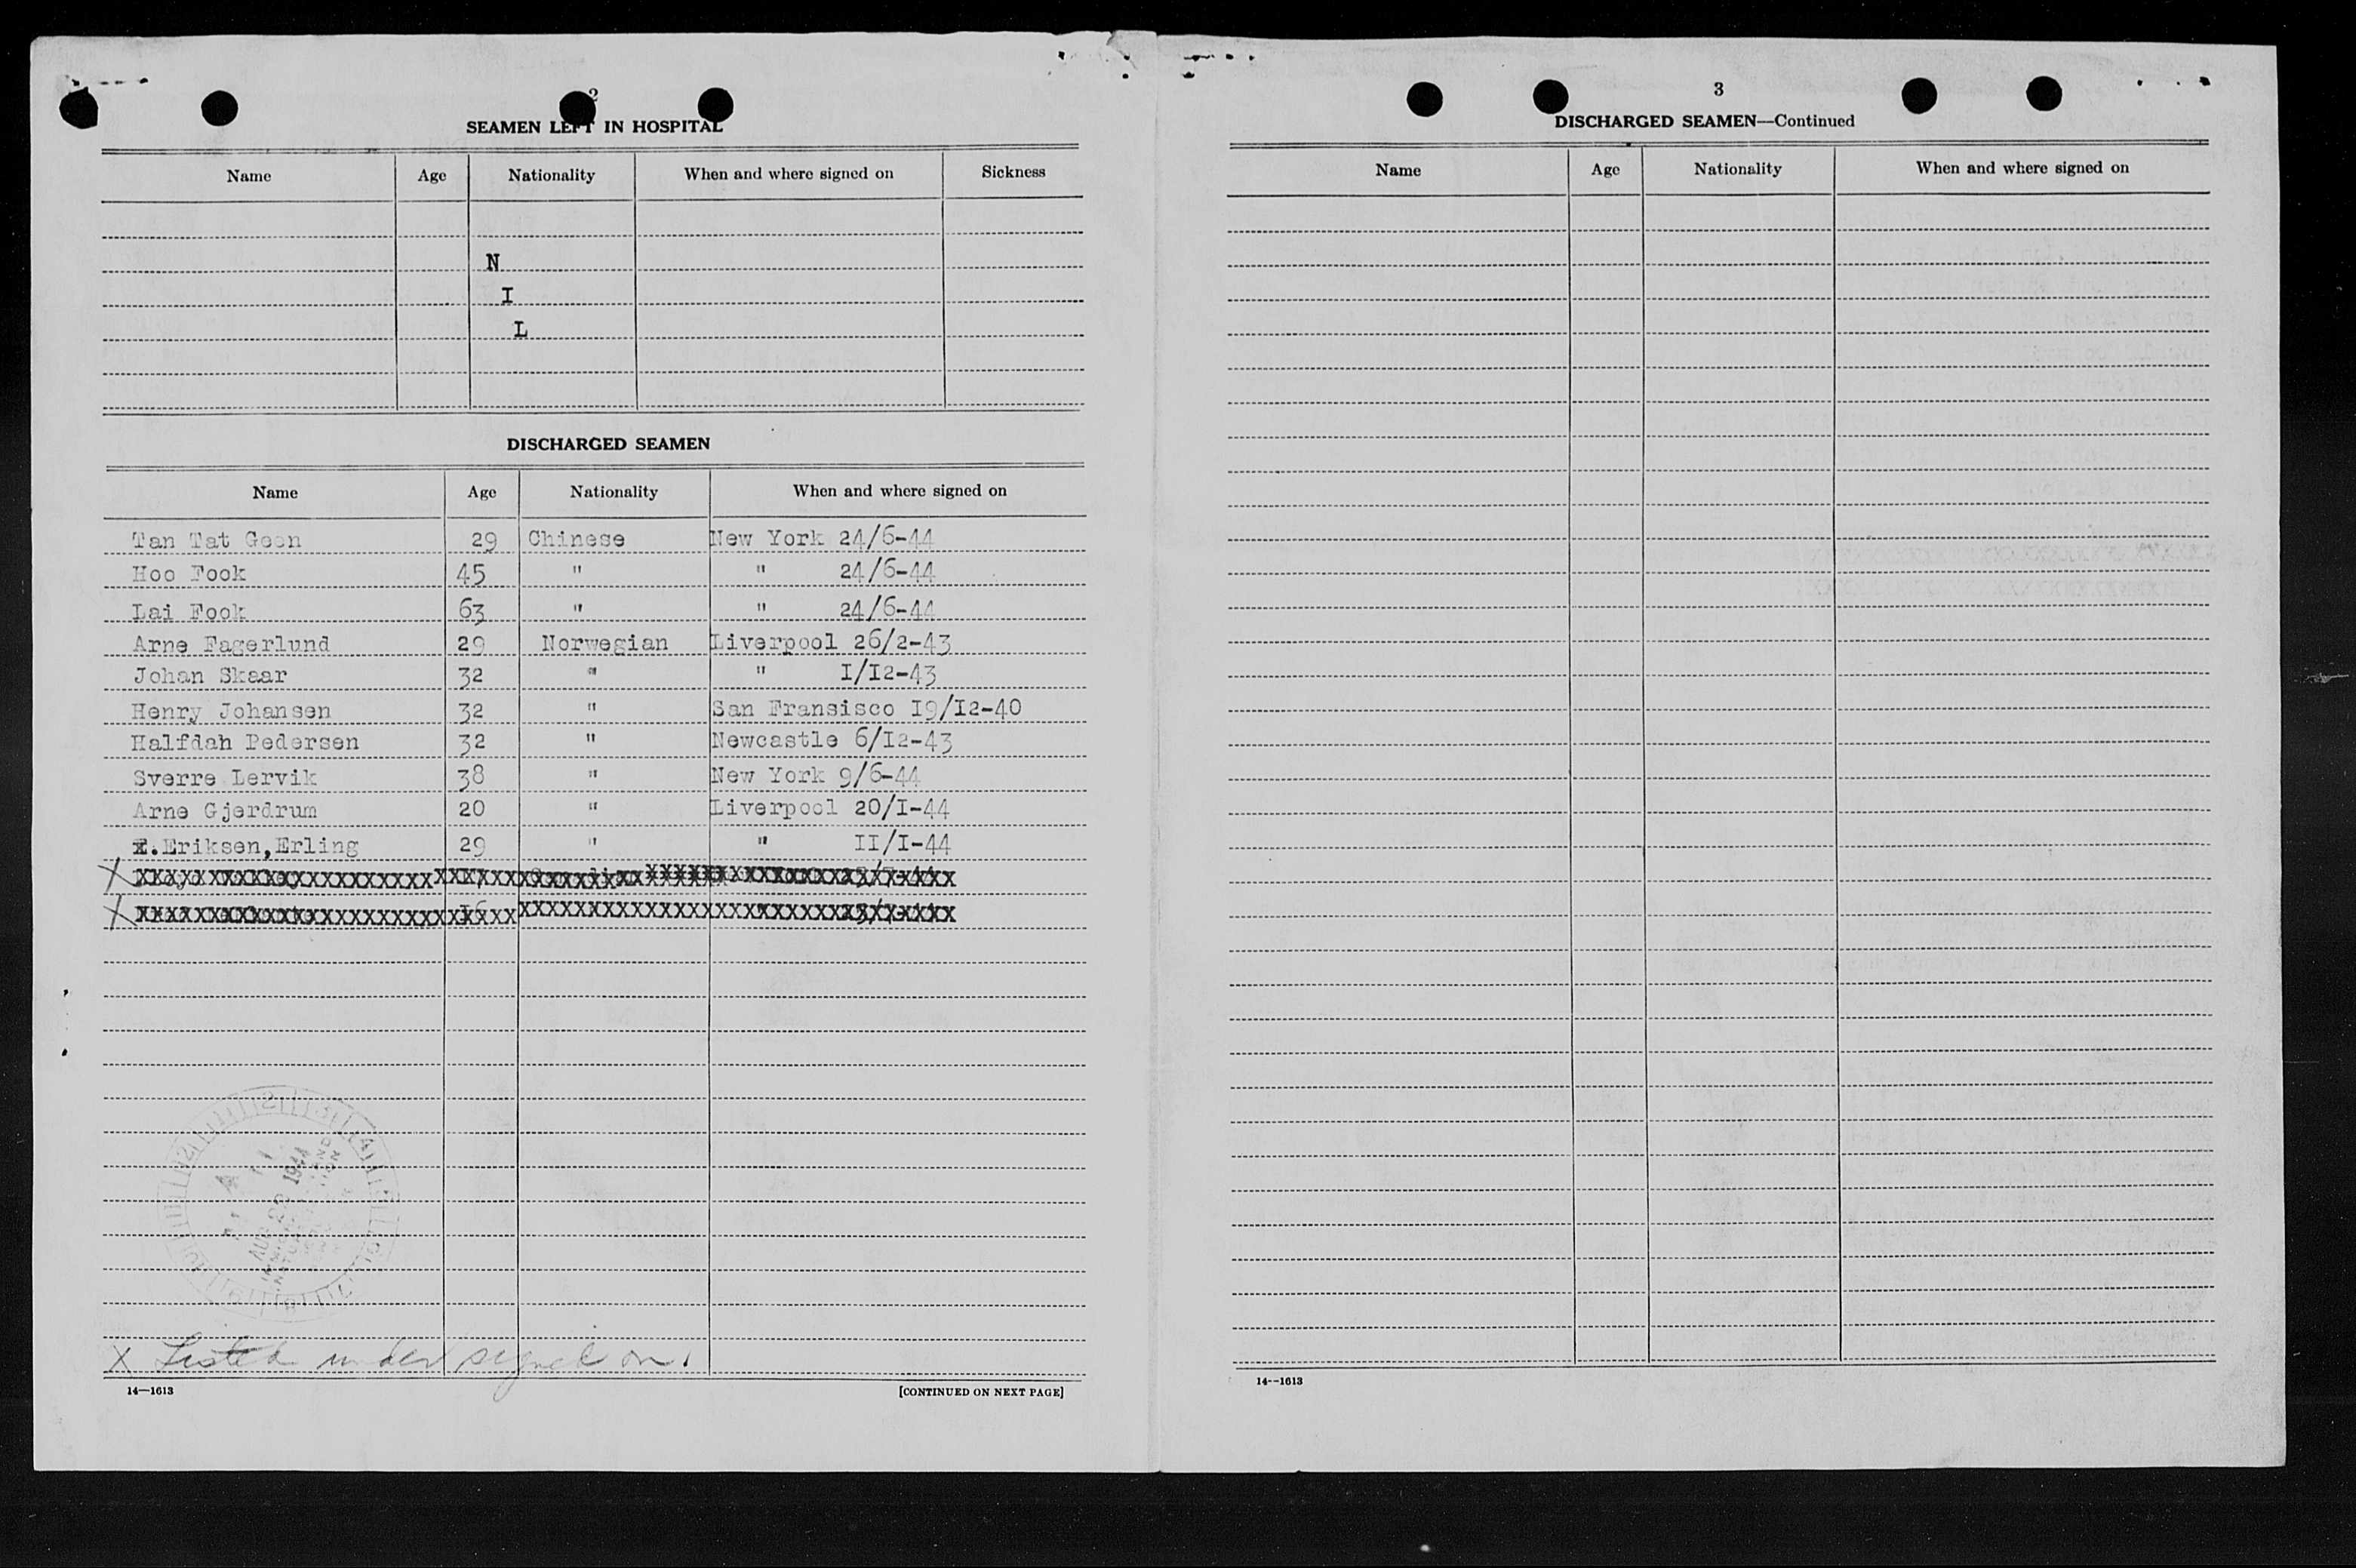 2
SEAMEN LEFT IN HOSPITAL
Name Age Nationality When and where signed on Sickness
N
I
L
DISCHARGED SEAMEN
Name Age Nationality When and where signed on
Tan Tat Geon 29 Chinese New York 24/6-44
Hoo Fook 45 " " 24/6-44
Lai Fook 63 " " 24/6-44
Arne Fagerlund 29 Norwegian Liverpool 26/2-43
Johan Skaar 32 " " I/I2-43
Henry Johansen 32 " San Fransisco I9/I2-40
Halfdah Pedersen 32 " Newcastle 6/I2-43
Sverre Lervik 38 " New York 9/6-44
Arne Gjerdrum 20 " Liverpool 20/I-44
Eriksen, Erling 29 " " II/I-44
X
X
AUG 22 1944
X Listed under signed on.
14—1613 [CONTINUED ON NEXT PAGE]
3
DISCHARGED SEAMEN—Continued
Name Age Nationality When and where signed on
14--1613